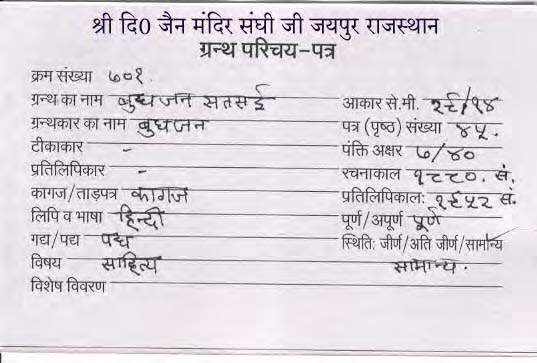 श्री दि0 जैन मंदिर संघी जी जयपुर राजस्थान
ग्रन्थ परिचय-पत्र
क्रम संख्या ७०१.
ग्रन्थ का नाम बुधजन सतसई आकार से.मी. २८/१४
ग्रन्थकार का नाम बुधजन पत्र (पृष्ठ) संख्या ४५.
टीकाकार - पंक्ति अक्षर ७/४०
प्रतिलिपिकार - रचनाकाल १८८०. सं.
कागज/ताड़पत्र कागज प्रतिलिपिकाल: १९५२ सं.
लिपि व भाषा हिन्दी पूर्ण/अपूर्ण पूर्ण
गद्य/पद्य पद्य स्थिति: जीर्ण/अति जीर्ण/सामान्य
विषय साहित्य सामान्य.
विशेष विवरण